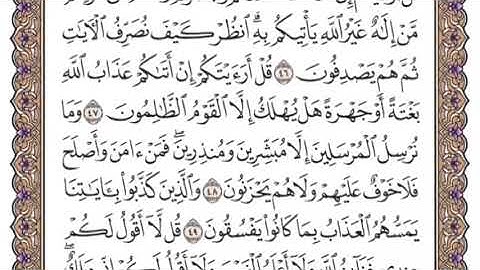 مَّنْ إِلَٰهٌ غَيْرُ اللَّهِ يَأْتِيكُم بِهِ ۗ انظُرْ كَيْفَ نُصَرِّفُ الْآيَاتِ
ثُمَّ هُمْ يَصْدِفُونَ ٤٦ قُلْ أَرَءَيْتَكُمْ إِنْ أَتَىٰكُمْ عَذَابُ اللَّهِ
بَغْتَةً أَوْ جَهْرَةً هَلْ يُهْلَكُ إِلَّا الْقَوْمُ الظَّالِمُونَ ٤٧ وَمَا
نُرْسِلُ الْمُرْسَلِينَ إِلَّا مُبَشِّرِينَ وَمُنذِرِينَ ۖ فَمَنْ ءَامَنَ وَأَصْلَحَ
فَلَا خَوْفٌ عَلَيْهِمْ وَلَا هُمْ يَحْزَنُونَ ٤٨ وَالَّذِينَ كَذَّبُوا بِـَٔايَٰتِنَا
يَمَسُّهُمُ الْعَذَابُ بِمَا كَانُوا يَفْسُقُونَ ٤٩ قُل لَّا أَقُولُ لَكُمْ